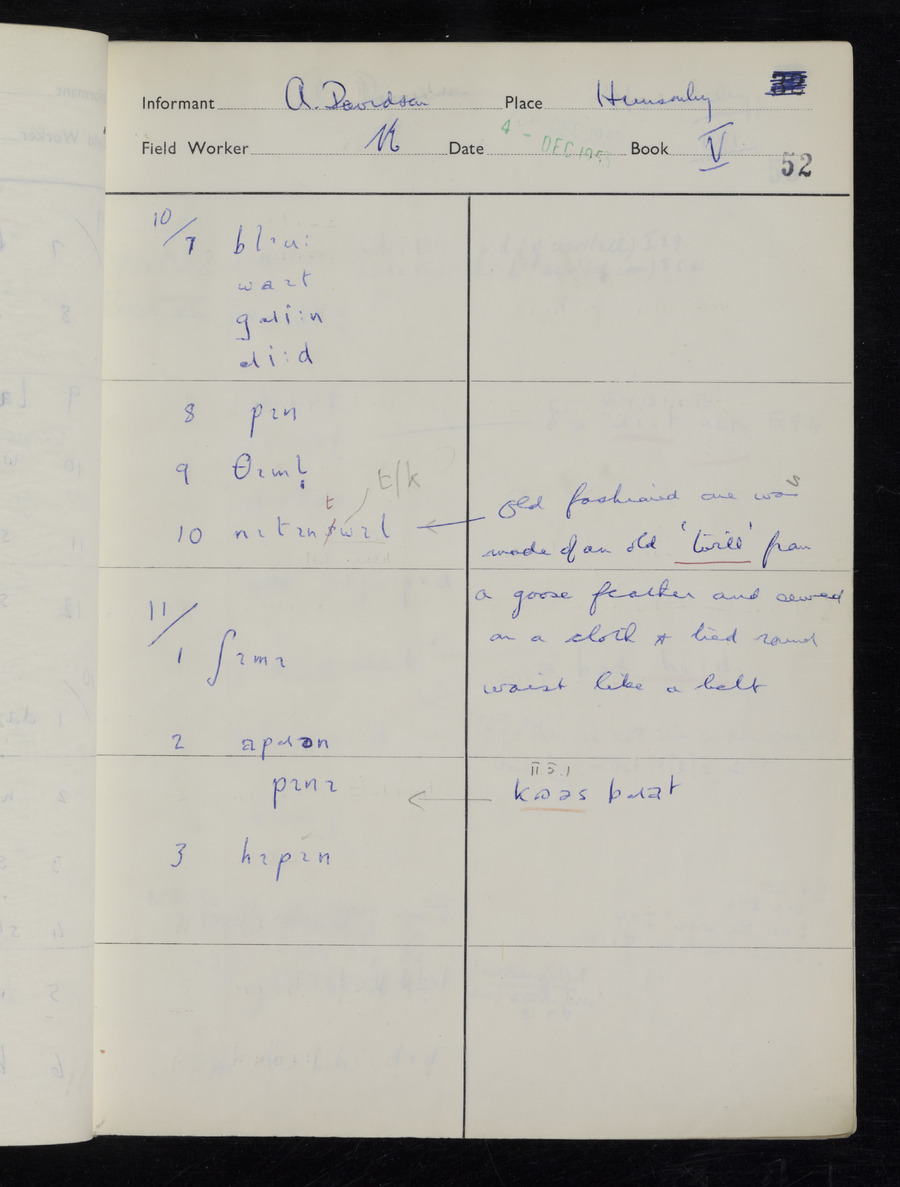 Informant A. Davidson Place Hunsonby
Field Worker Date 4 - DEC 195 Book V
52
10/7 blɪuː
waɪt
gɹiːn
ɹiːd
8 pɪn
9 θɪml̩
t/k
t
10 nɪtɪnswɪl
Old fashioned one was
made of an old 'twill' from
a goose feather and sewed
on a cloth & tied round
waist like a belt
11/
1 ʃɪmɪ
2 apɹən
pɪnɪ
II 5.1
kʊəs bɹat
3 hɪpɪn